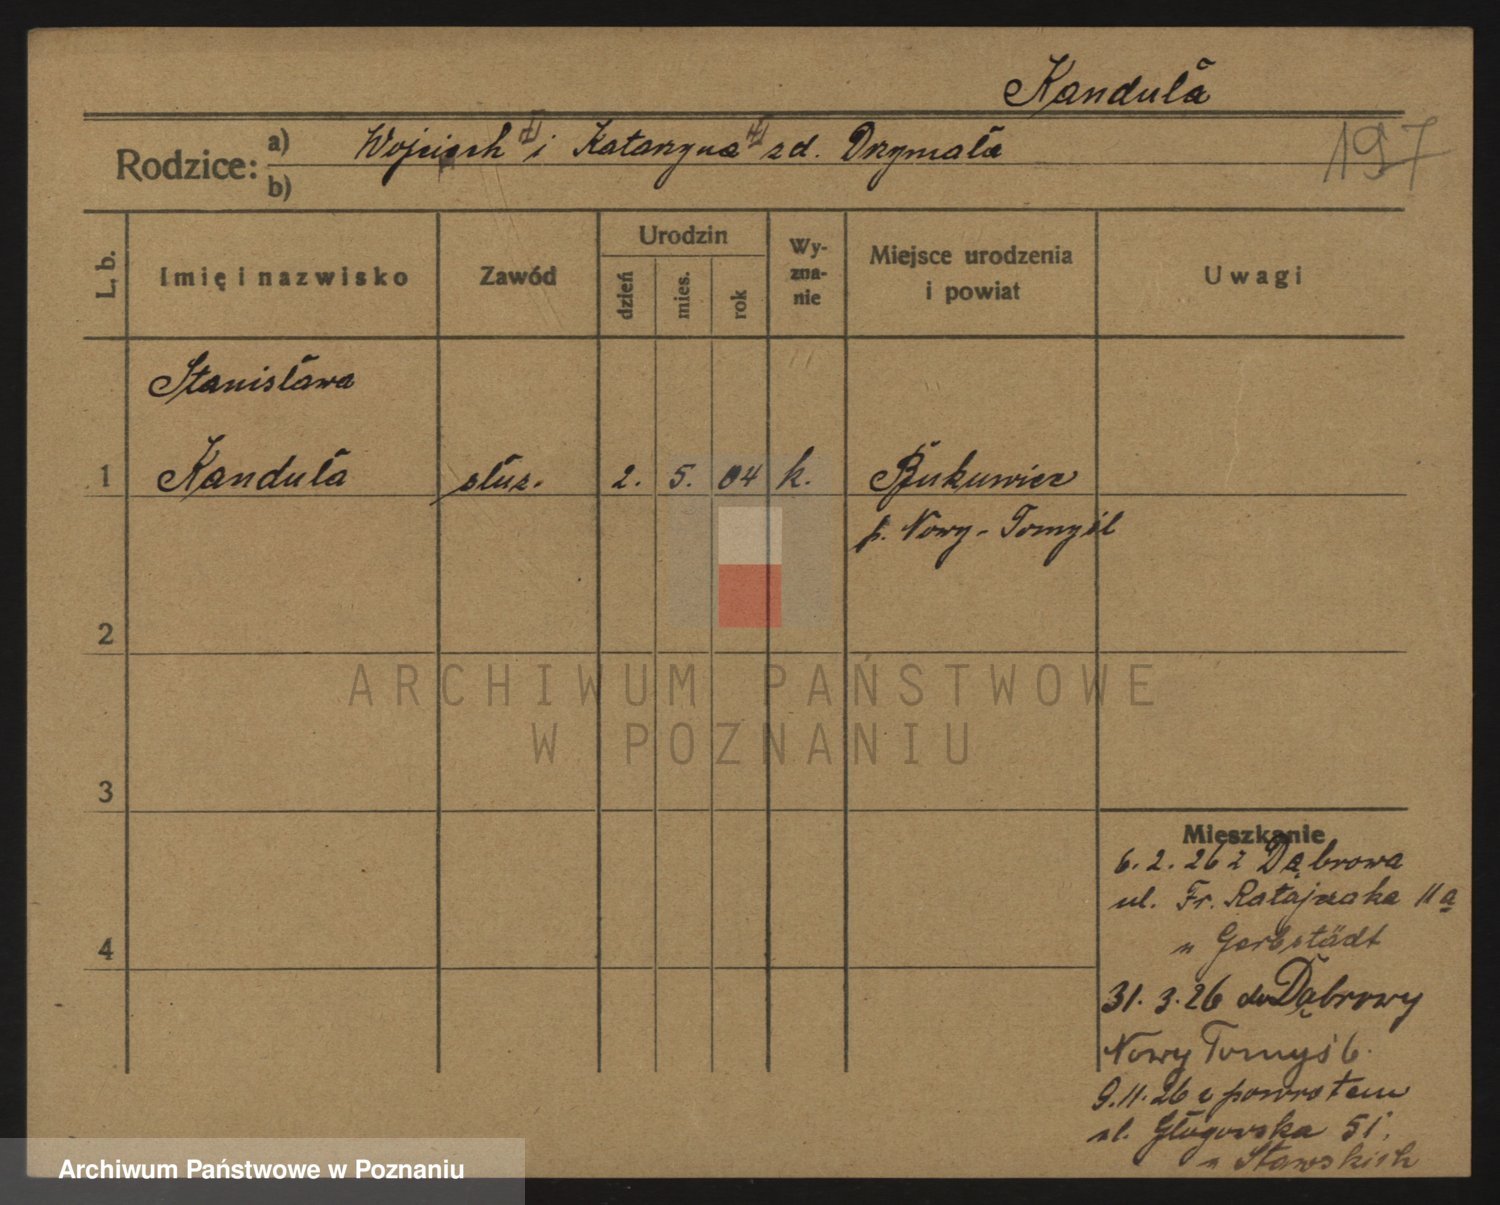 Kanduła
Rodzice: a) Wojciech i Katarzyna zd. Drzymała
b)
197
L. b.
Imię i nazwisko
Zawód
Urodzin
dzień
mies.
rok
Wy-
zna-
nie
Miejsce urodzenia
i powiat
Uwagi
Stanisława
1 Kanduła służ. 2. 5. 04 k. Bukuwiec
p. Nowy-Tomyśl
2
3
4
Mieszkanie
6. 2. 26 z Dąbrowa
ul. Fr. Ratajczaka 11a
u Gerbstädt
31. 3. 26 do Dąbrowy
Nowy Tomyśl
9.11.26 z powrotem
ul. Głogowska 51.
u Stawskich
ARCHIWUM PAŃSTWOWE
W POZNANIU
Archiwum Państwowe w Poznaniu